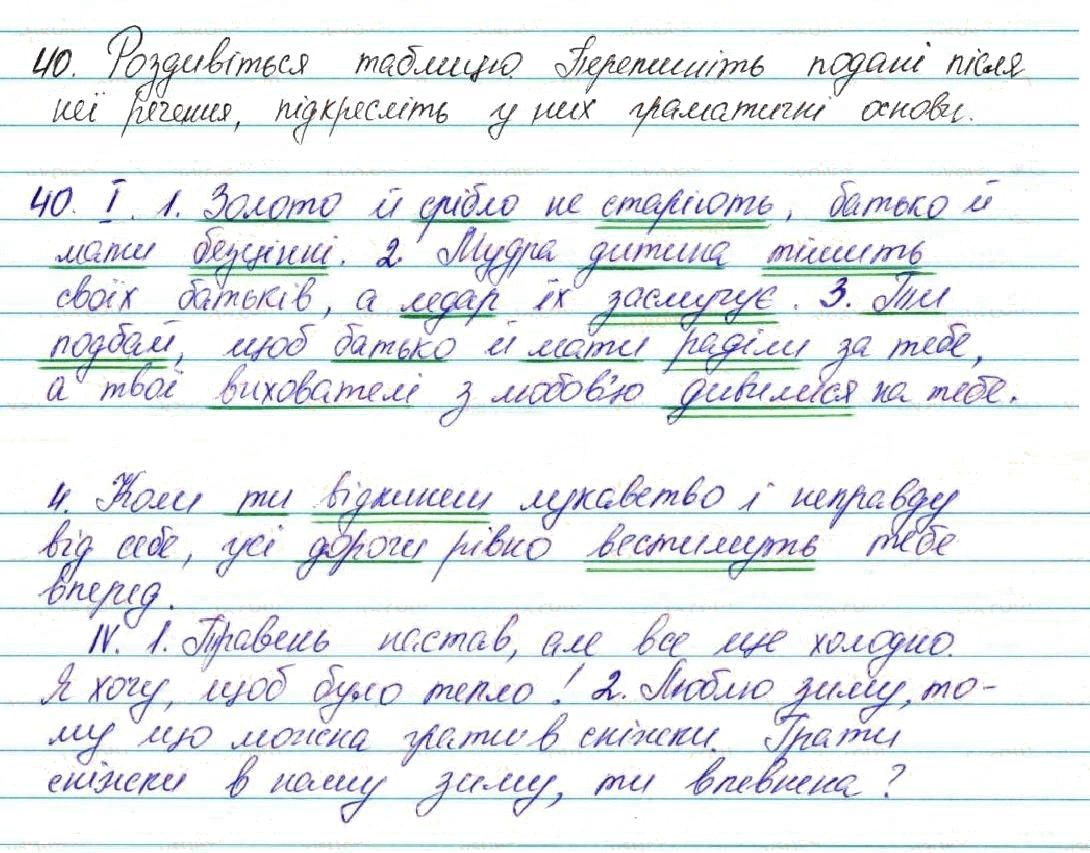 40. Роздивіться таблицю. Перепишіть подані після
неї речення, підкресліть у них граматичні основи.
40. І. 1. Золото й срібло не старіють, батько й
мати безцінні. 2. Мудра дитина тішить
своїх батьків, а ледар їх засмучує. 3. Ти
подбай, щоб батько й мати раділи за тебе,
а твої вихователі з любов'ю дивилися на тебе.
4. Коли ти відкинеш лукавство і неправду
від себе, усі дороги рівно вестимуть тебе
вперед.
ІV. 1. Травень настав, але все ще холодно.
Я хочу, щоб було тепло! 2. Люблю зиму, то-
му що можна грати в сніжки. Грати
сніжки в нашу зиму, ти впевнена?